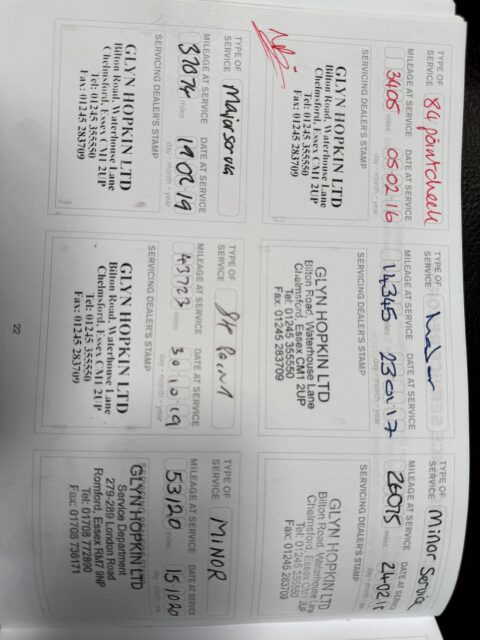 TYPE OF SERVICE 84 point check
MILEAGE AT SERVICE DATE AT SERVICE
3405 miles 05 02 16
day - month - year
SERVICING DEALER'S STAMP
GLYN HOPKIN LTD
Bilton Road, Waterhouse Lane
Chelmsford, Essex CM1 2UP
Tel: 01245 355550
Fax: 01245 283709
TYPE OF SERVICE
MILEAGE AT SERVICE DATE AT SERVICE
14345 miles 23 01 17
day - month - year
SERVICING DEALER'S STAMP
GLYN HOPKIN LTD
Bilton Road, Waterhouse Lane
Chelmsford, Essex CM1 2UP
Tel: 01245 355550
Fax: 01245 283709
TYPE OF SERVICE Minor Service
MILEAGE AT SERVICE DATE AT SERVICE
26075 miles 24 02 1
SERVICING DEALER'S STAMP
GLYN HOPKIN LTD
Bilton Road, Waterhouse Lane
Chelmsford, Essex CM1 2UP
Tel: 01245 355550
Fax: 01245 283709
TYPE OF SERVICE Major service
MILEAGE AT SERVICE DATE AT SERVICE
37074 miles 19 02 19
day - month - year
SERVICING DEALER'S STAMP
GLYN HOPKIN LTD
Bilton Road, Waterhouse Lane
Chelmsford, Essex CM1 2UP
Tel: 01245 355550
Fax: 01245 283709
TYPE OF SERVICE 84 Point
MILEAGE AT SERVICE DATE AT SERVICE
43723 miles 30 10 19
day - month - year
SERVICING DEALER'S STAMP
GLYN HOPKIN LTD
Bilton Road, Waterhouse Lane
Chelmsford, Essex CM1 2UP
Tel: 01245 355550
Fax: 01245 283709
TYPE OF SERVICE MINOR
MILEAGE AT SERVICE DATE AT SERVICE
53120 miles 15 10 20
day - month - year
GLYN HOPKIN LTD
Service Department
279-289 London Road
Romford, Essex RM7 9NP
Tel: 01708 772890
Fax: 01708 736171
22